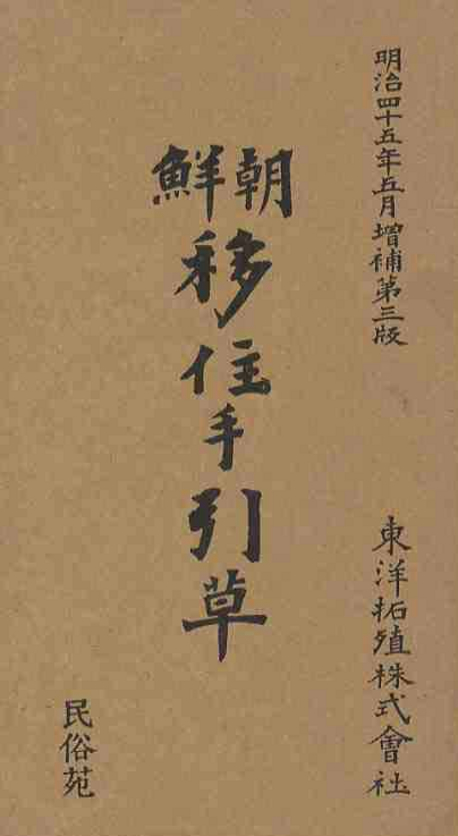 明治四十五年五月增補第三版
東洋拓殖株式會社
朝鮮
移住手引草
民俗苑